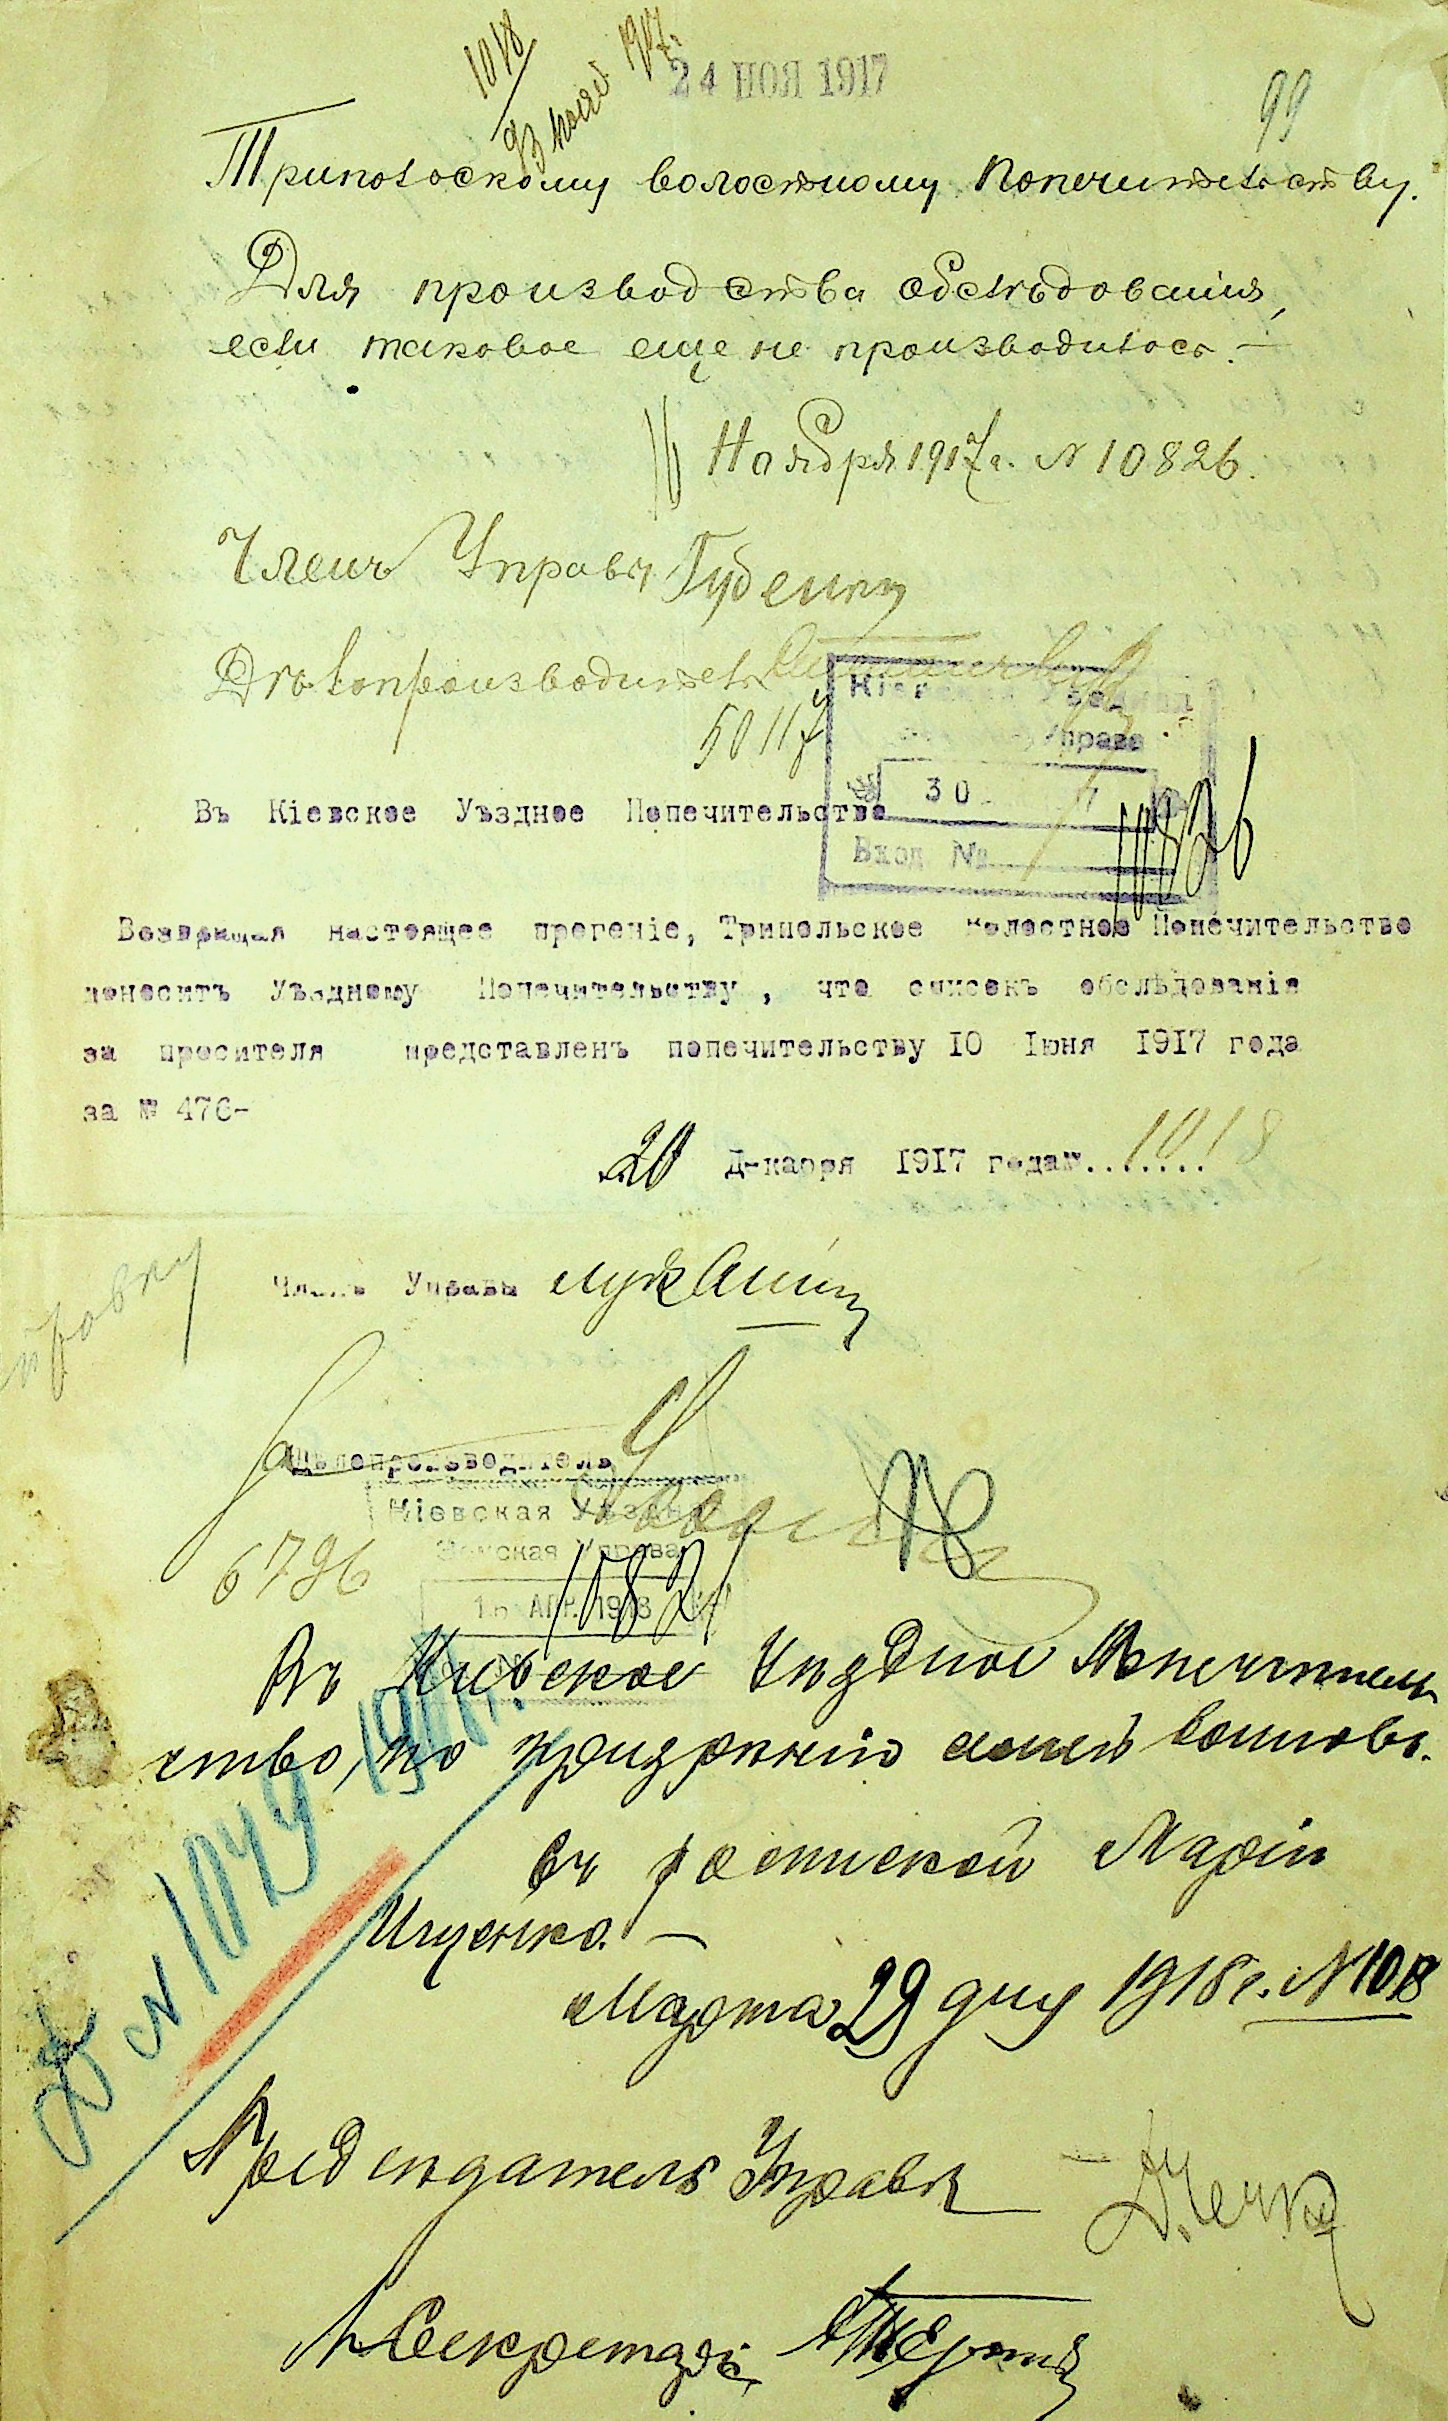 1018
23 нояб. 1917 г.
24 НОЯ 1917
99
Трипольскому волостному попечительству.
Для производства обслѣдованія,
если таковое еще не производилось.—
16 Ноября 1917 г. N 10826.
Членъ Управы
Дѣлопроизводитель
50117
Кіевская Уѣздная
Управа
30
Вход №
10826
Въ Кіевское Уѣздное Попечительство
Возвращая настоящее прошеніе, Трипольское волостное Попечительство
доноситъ Уѣздному Попечительству, что список​ъ обслѣдованія
за просителя представленъ попечительству 10 Іюня 1917 года
за № 476-
20 Декабря 1917 года №........1018
Членъ Управы
Дѣлопроизводитель
Кіевская Уѣздная
Земская Управа
15 АПР. 1918
6796
10821
Въ Киевское Уѣздное Попечитель
ство, по призрѣнію семей воиновъ.
въ роспиской Маріи
Ищенко. —
Марта 29 дня 1918 г. N 1018
N 1049
Предсѣдатель Управы
Секретарь